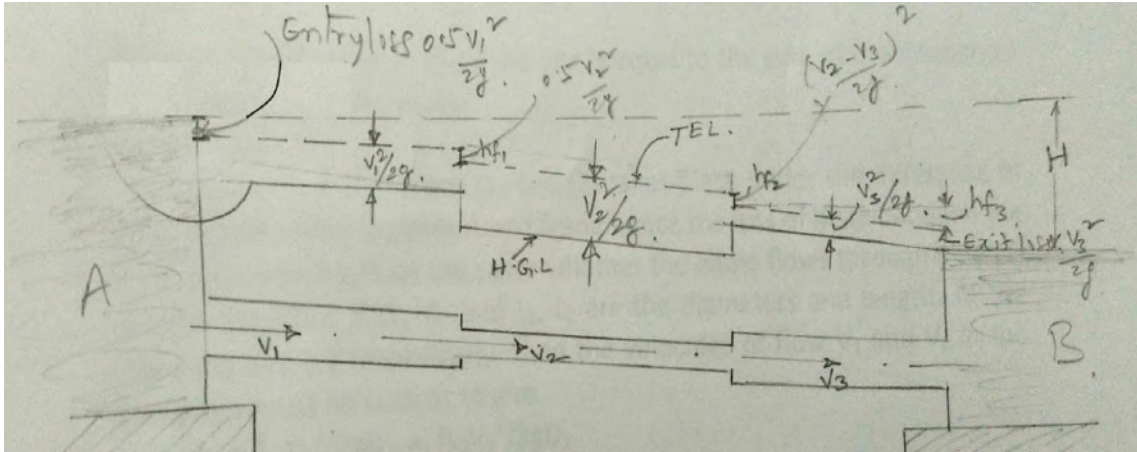 Entry loss 0.5 V₁²/2g.
0.5 V₂²/2g
(V₂-V₃)²/2g.
TEL.
H
V₁²/2g.
hf₁
V₂²/2g.
hf₂
V₃²/2g.
hf₃
Exit loss V₃²/2g
H.G.L
A
V₁
V₂
V₃
B